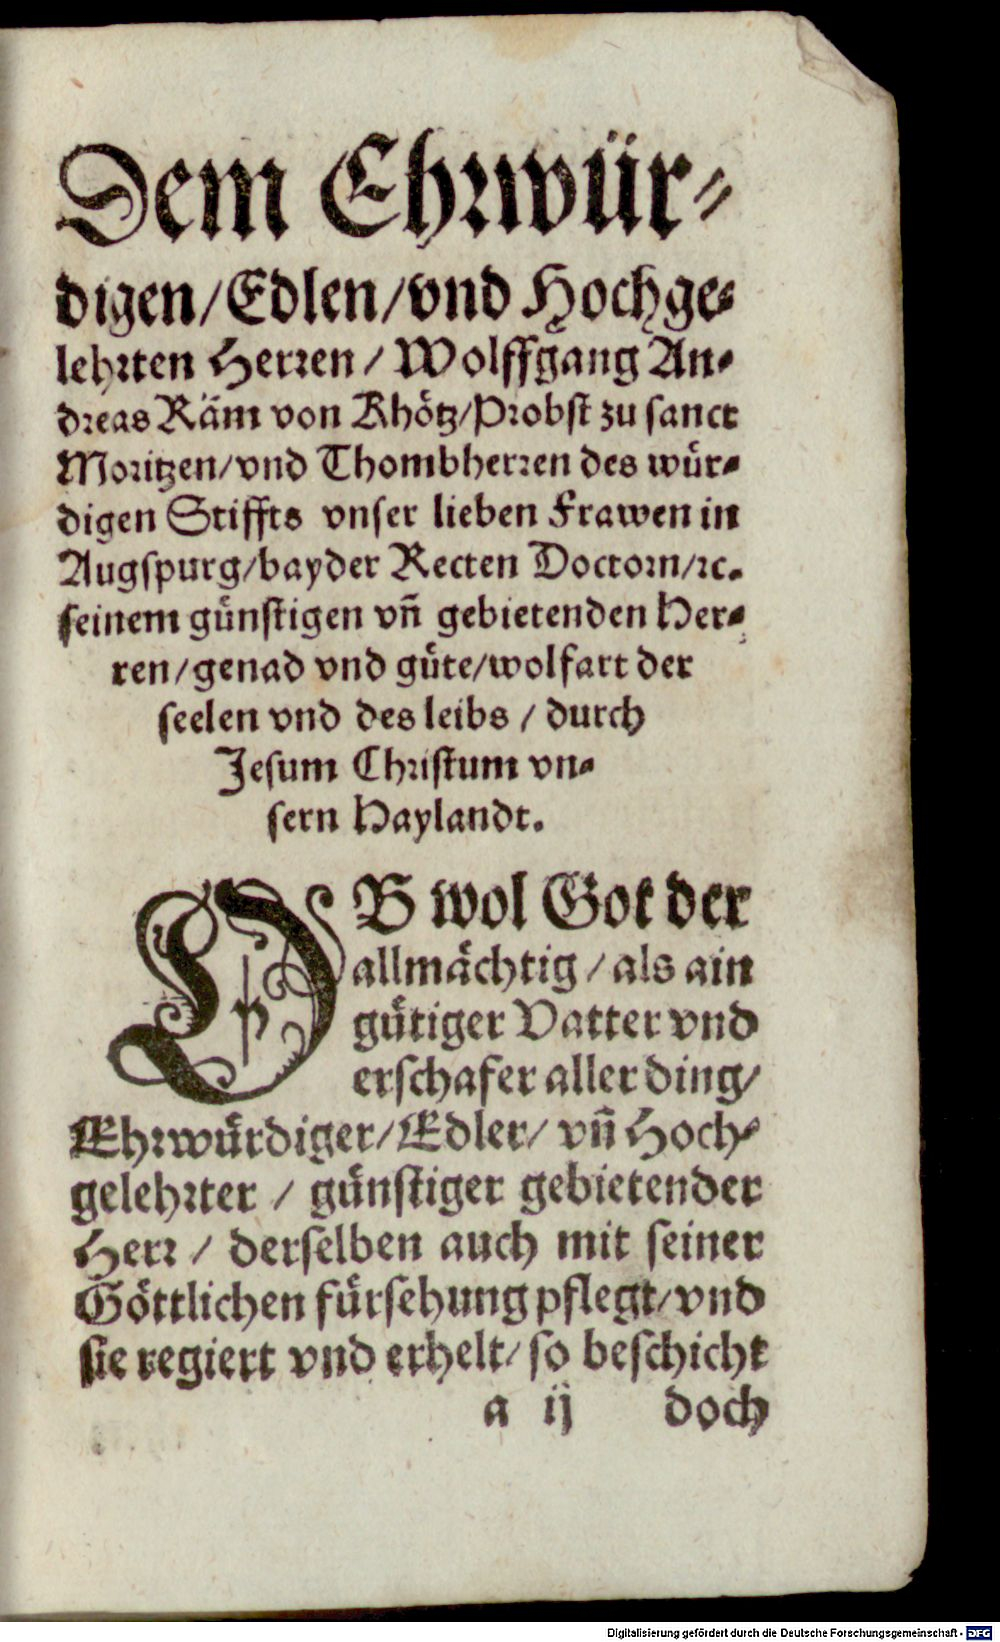 Dem Ehrwür⸗
digen/Edlen/vnd Hochge⸗
lehrten Herren/ Wolffgang An⸗
dreas Räm von Khötz/Probst zu sanct
Moritzen/vnd Thombherren des wür⸗
digen Stiffts vnser lieben Frawen in
Augspurg/bayder Recten Doctorn/ꝛc.
seinem günstigen vñ gebietenden Her⸗
ren/genad vnd güte/wolfart der
seelen vnd des leibs / durch
Jesum Christum vn⸗
sern Haylandt.
OB wol Got der
allmächtig / als ain
gütiger Vatter vnd
erschafer aller ding/
Ehrwürdiger/Edler/ vñ Hoch⸗
gelehrter / günstiger gebietender
Herr / derselben auch mit seiner
Göttlichen fürsehung pflegt/vnd
sie regiert vnd erhelt/ so beschicht
a ij doch
Digitalisierung gefördert durch die Deutsche Forschungsgemeinschaft - DFG